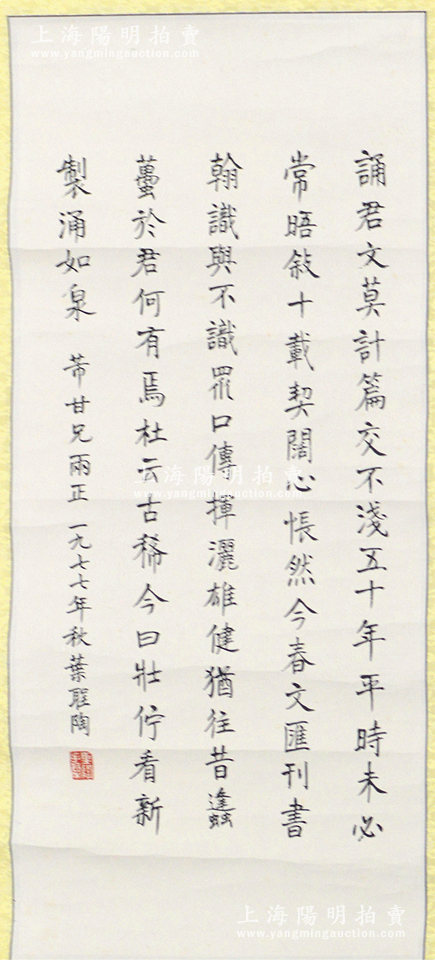 上海陽明拍賣
www.yangmingauction.com
誦君文莫計篇交不淺五十年平時未必
常晤敍十載契闊心悵然今春文匯刊書
翰識與不識眾口傳揮灑雄健猶往昔蠭
蠆於君何有焉杜云古稀今曰壯佇看新
製涌如泉
芾甘兄兩正 一九七七年秋葉聖陶
上海陽明拍賣
www.yangmingauction.com
上海陽明拍賣
www.yangmingauction.com